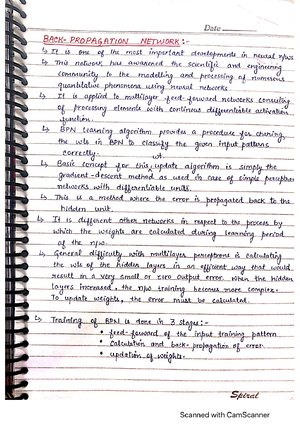 Date
BACK-PROPAGATION NETWORK:-
↳ It is one of the most important developments in neural n/ws.
↳ This network has awakened the scientific and engineering
community to the modelling and processing of numerous
quantitative phenomena using neural networks
↳ It is applied to multilayer feed-forward networks consisting
of processing elements with continous differentiable activation
function.
↳ BPN learning algorithm provides a procedure for chaning
the wts in BPN to classify the given input patterns
correctly.
wt.
↳ Basic concept for this, update algorithm is simply the
gradient-descent method as used in case of simple perceptron
networks with differentiable units.
↳ This is a method where the error is propagated back to the
hidden unit.
↳ It is different other networks in respect to the process by
which the weights are calculated during learning period
of the n/w.
↳ General difficulty with multilayer perceptrons is calculating
the wts of the hidden layers in an efficient way that would
result in a very small or zero output error. When the hidden
layers increased, the n/w training becomes more complex.
To update weights, the error must be calculated.
↳ Training of BPN is done in 3 stages:-
• feed-forward of the input training pattern
• Calculation and back-propagation of error
• updation of weights.
Spiral
Scanned with CamScanner